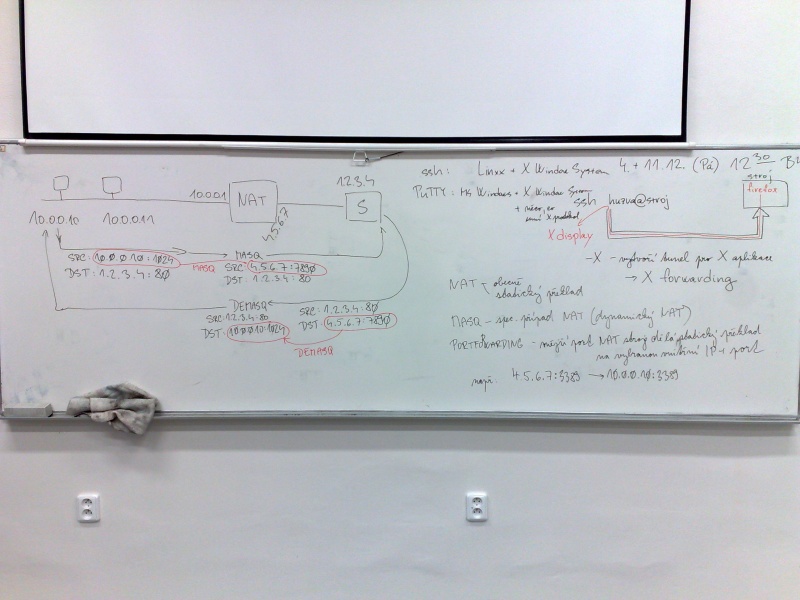 10.0.0.10
10.0.0.11
10.0.0.1
NAT
4.5.6.7
1.2.3.4
S
SRC: 10.0.0.10:1024
DST: 1.2.3.4:80
MASQ
MASQ
SRC: 4.5.6.7:7890
DST: 1.2.3.4:80
DEMASQ
SRC: 1.2.3.4:80
DST: 10.0.0.10:1024
SRC: 1.2.3.4:80
DST: 4.5.6.7:7890
DEMASQ
ssh: Linux + X Window System 4. + 11.12. (Pá) 12 30
PuTTY: MS Windows + X Window
ssh hurva@stroj
stroj
firefox
X display
-X - vytvoří tunel pro X aplikace
→ X forwarding
NAT - obecně
statický překlad
MASQ - spec. případ NAT (dynamický NAT)
PORTFORWARDING - port NAT stroj dělá statický překlad
na vybranou vnitřní IP + port
např. 4.5.6.7:3389 → 10.0.0.10:3389